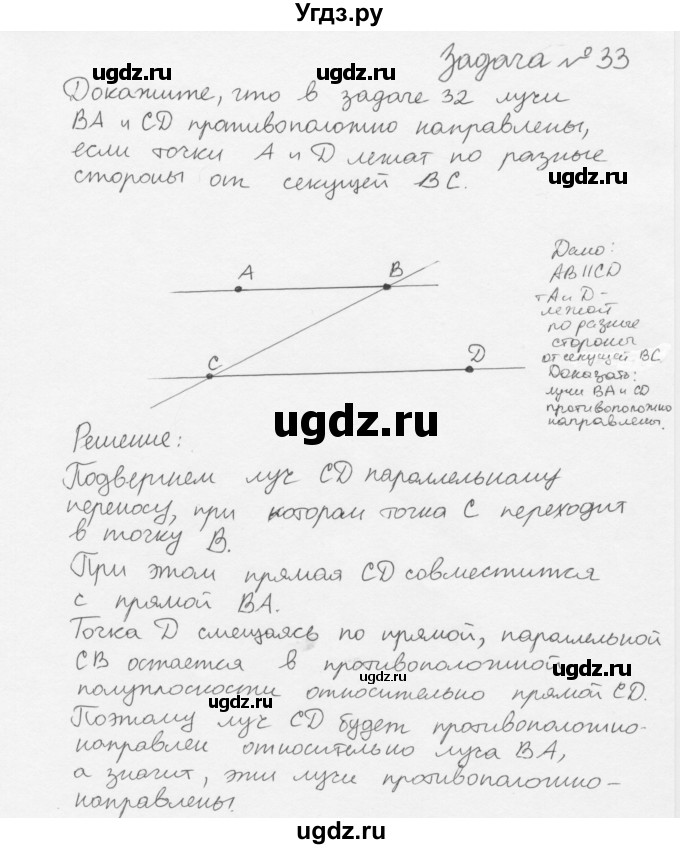 Угдз.ру
Задача №33
ugdz.ru ugdz.ru
Докажите, что в задаче 32 лучи
BA и CD противоположно направлены,
если точки A и D лежат по разные
ugdz.ru
стороны от секущей BC.
Дано:
AB||CD
т A и D -
лежат
по разные
стороны
от секущей BC
Доказать:
лучи BA и CD
противоположно
направлены.
A B
C D
ugdz.ru
Решение:
Подвергнем луч CD параллельному
переносу, при котором точка C переходит
в точку B.
ugdz.ru
При этом прямая CD совместится
с прямой BA.
Точка D смещаясь по прямой, параллельной
CB остается в противоположной
ugdz.ru
полуплоскости относительно прямой CD.
ugdz.ru
Поэтому луч CD будет противоположно-
направлен относительно луча BA,
а значит, эти лучи противоположно-
направлены.
ugdz.ru
ugdz.ru